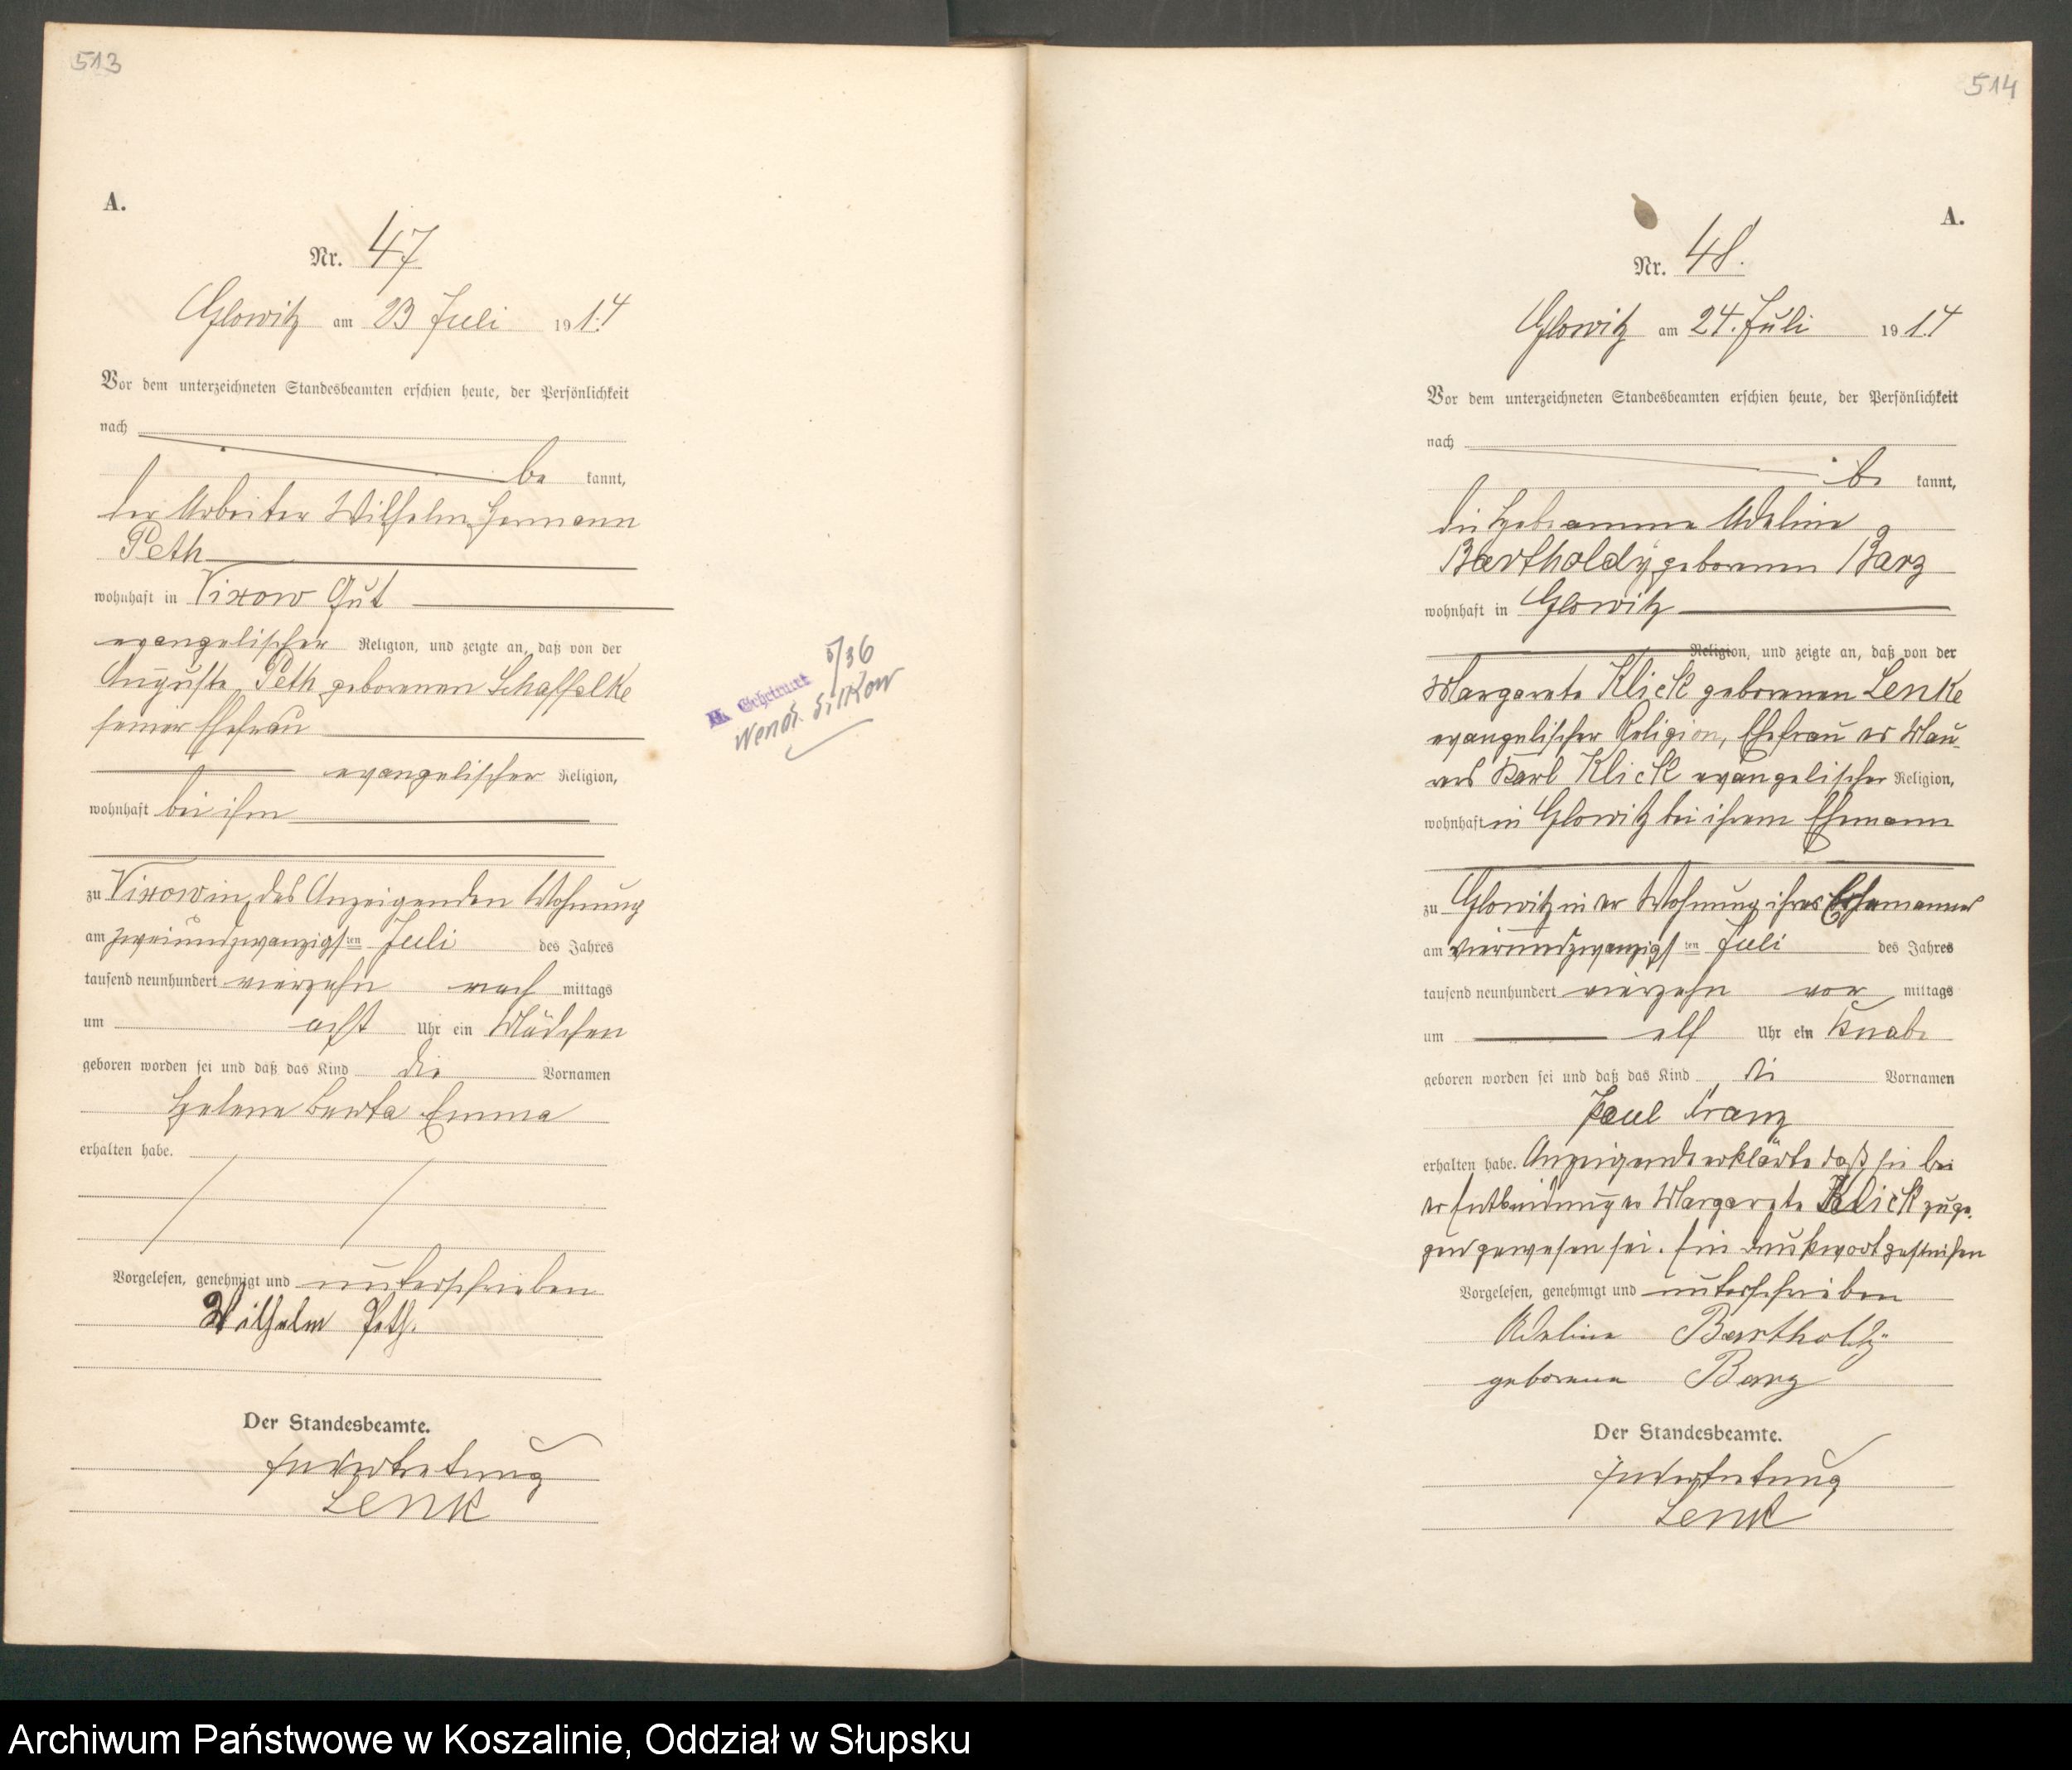 513
A.
Nr. 47
Glowitz am 23 Juli 1914
Vor dem unterzeichneten Standesbeamten erschien heute, der Persönlichkeit
nach
be kannt,
der Arbeiter Wilhelm Hermann
Peth
wohnhaft in Vixow Gut
evangelischer Religion, und zeigte an, daß von der
Auguste Peth geborenen Schaffelke
seiner Ehefrau
evangelischer Religion,
wohnhaft bei ihm
zu Vixow in des Anzeigenden Wohnung
am zweiundzwanzigsten Juli des Jahres
tausend neunhundert vierzehn nach mittags
um acht Uhr ein Mädchen
geboren worden sei und daß das Kind die Vornamen
Helene Berta Emma
erhalten habe.
Vorgelesen, genehmigt und unterschrieben
Wilhelm Peth.
Der Standesbeamte.
In Vertretung
Lenk
5/36
H. Geheiratet
Wend. Silkow
514
A.
Nr. 48.
Glowitz am 24. Juli 1914
Vor dem unterzeichneten Standesbeamten erschien heute, der Persönlichkeit
nach
be kannt,
die Hebeamme Adeline
Bartholdy geborenen Barz
wohnhaft in Glowitz
Religion, und zeigte an, daß von der
Margarete Klick geborenen Lenke
evangelischer Religion, Ehefrau des Mau-
rers Karl Klick evangelischer Religion,
wohnhaft in Glowitz bei ihrem Ehemann
zu Glowitz in der Wohnung ihres Ehemannes
am vierundzwanzigsten Juli des Jahres
tausend neunhundert vierzehn vor mittags
um elf Uhr ein Knabe
geboren worden sei und daß das Kind die Vornamen
Paul Franz
erhalten habe. Anzeigende erklärte daß sie bei
der Entbindung der Margarete Klick zuge-
gen gewesen sei. Ein Druckwort gestrichen
Vorgelesen, genehmigt und unterschrieben
Adeline Bartholdy
geborene Barz
Der Standesbeamte.
In Vertretung
Lenk
Archiwum Państwowe w Koszalinie, Oddział w Słupsku